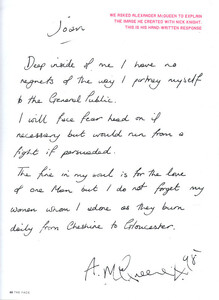 WE ASKED ALEXANDER McQUEEN TO EXPLAIN
THE IMAGE HE CREATED WITH NICK KNIGHT.
THIS IS HIS HAND-WRITTEN RESPONSE
Joan
Deep inside of me I have no
regrets of the way I portray myself
to the General Public.
I will face fear head on if
necessary but would run from a
fight if persuaded.
The fire in my soul is for the love
of one Man but I do not forget my
women whom I adore as they burn
daily from Cheshire to Gloucester.
A. McQueen 98
THE FACE